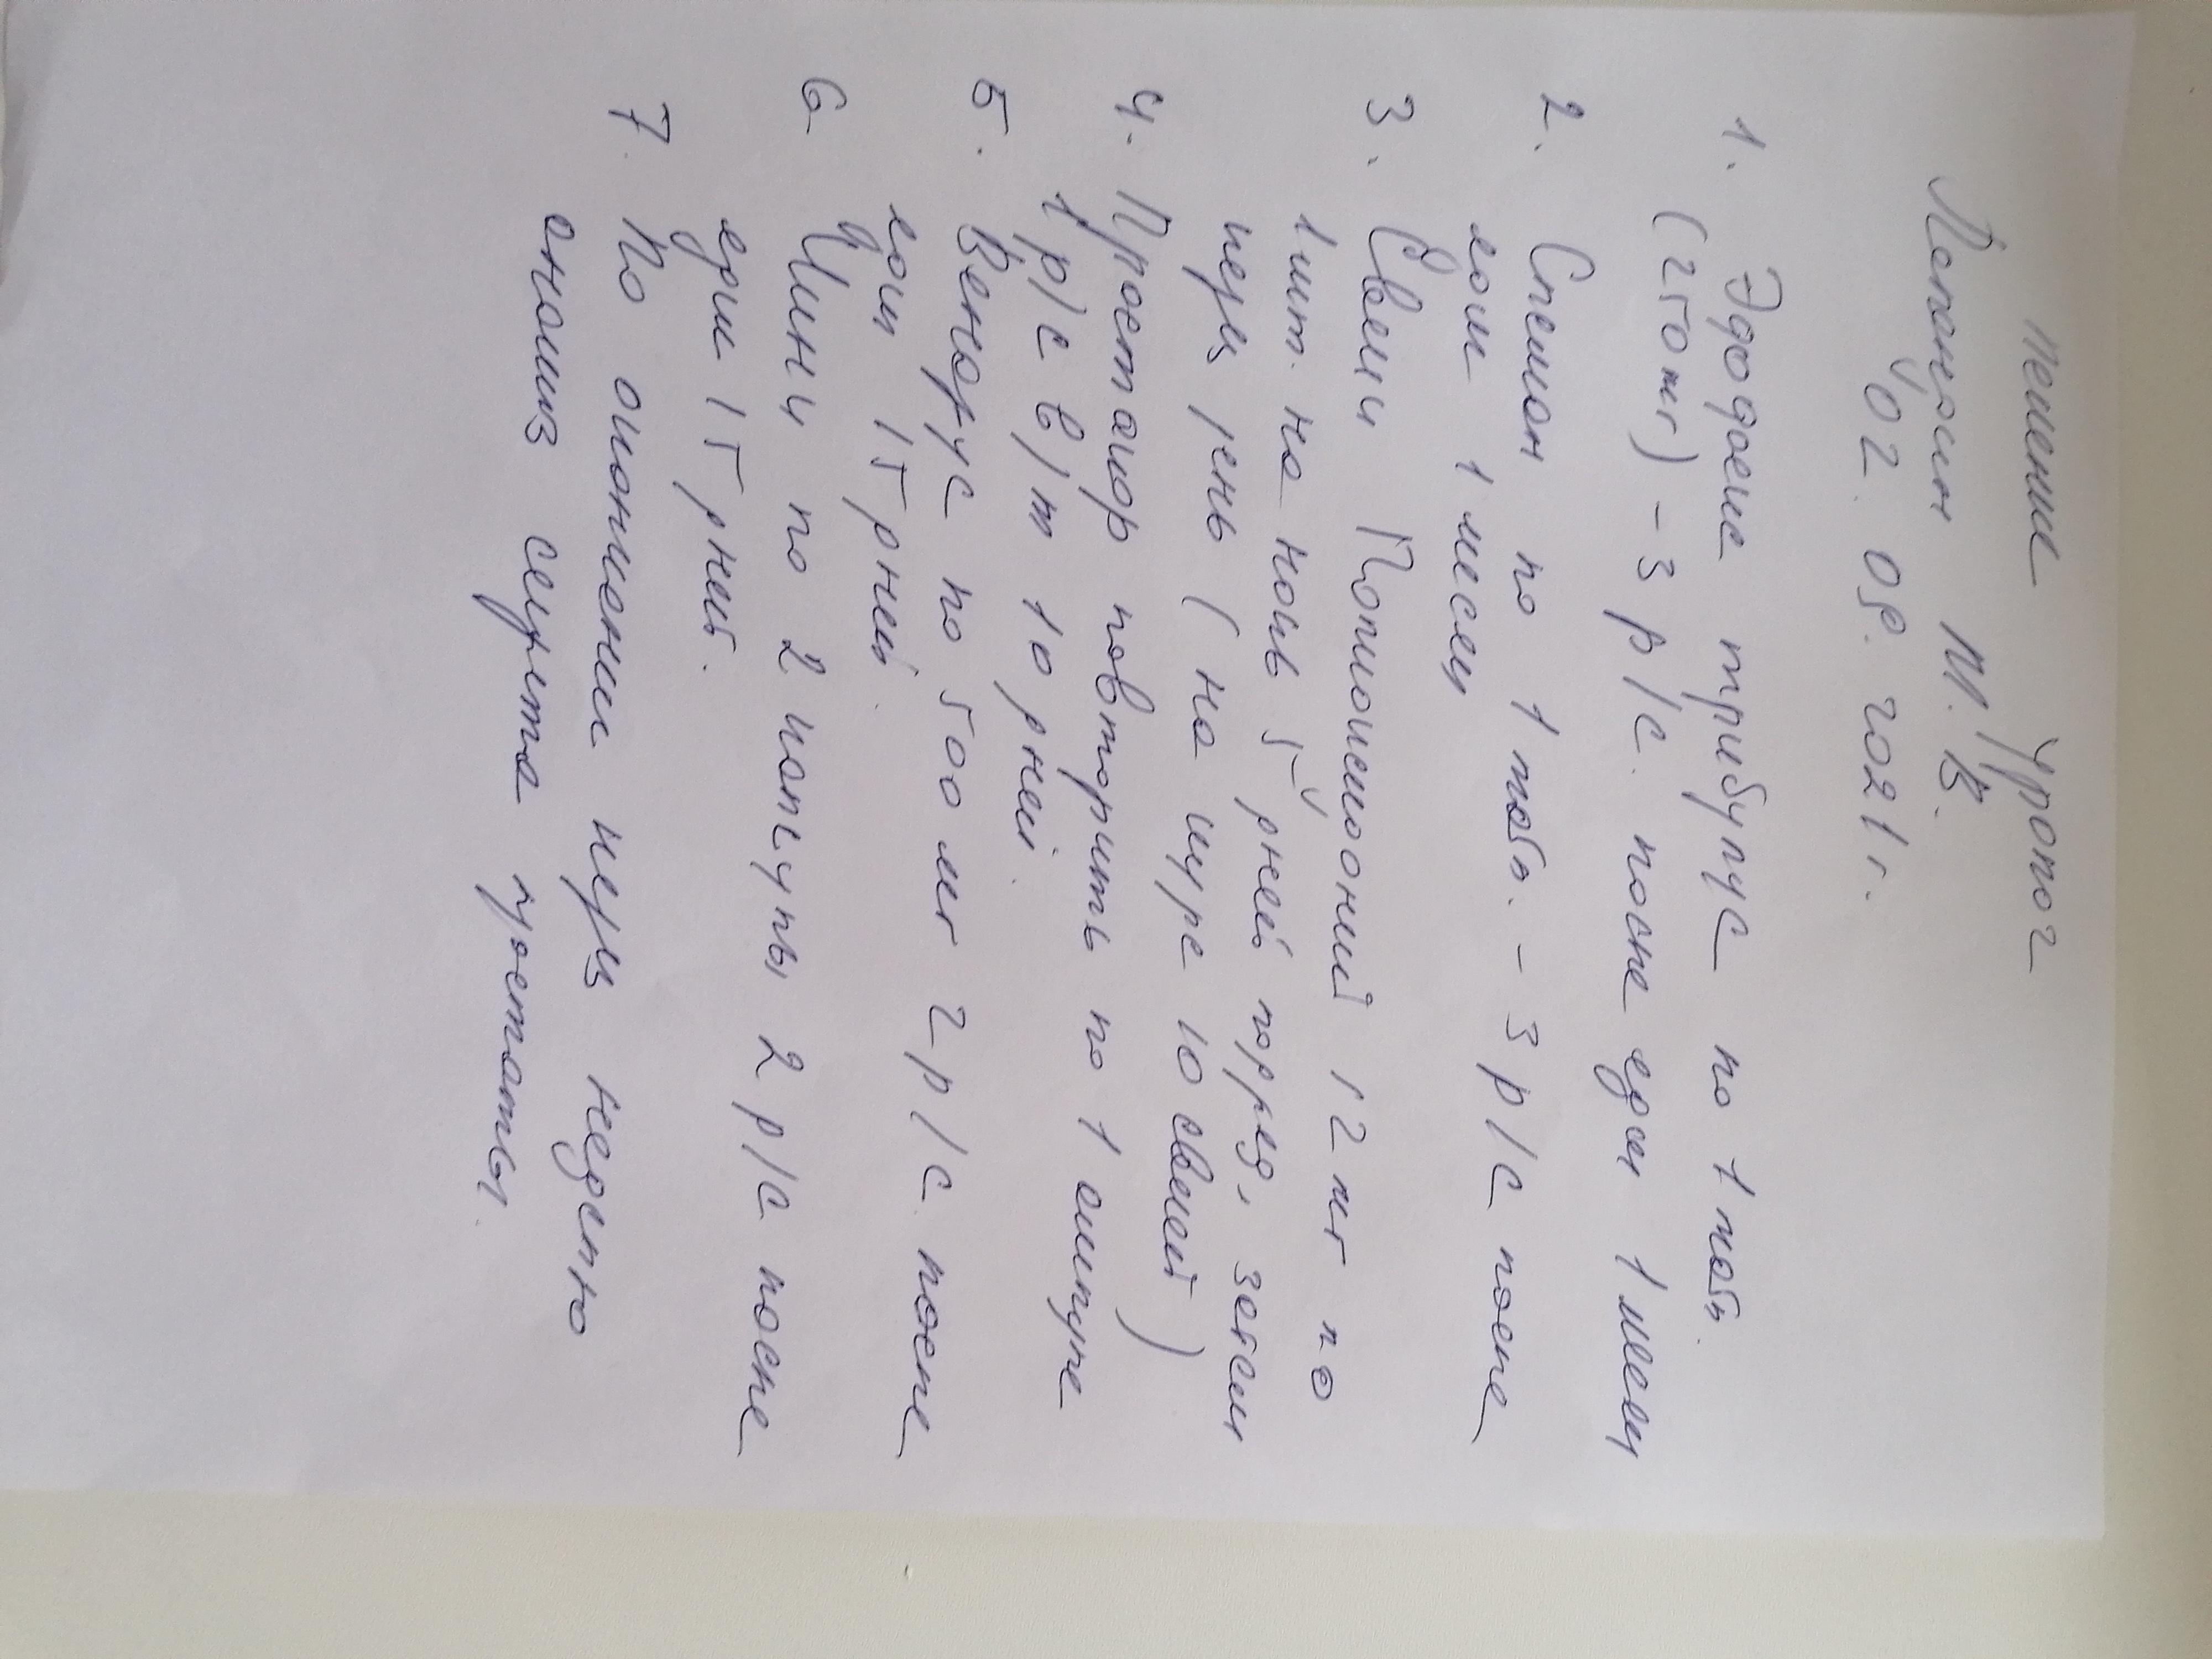 лечение Уролог
М. В.
02. 08. 2021 г.
1. Эффекс трибулус по 1 табл.
(250 мг) - 3 р/с. после еды 1 месяц
2. Спеман по 1 табл. - 3 р/с после
еды 1 месяц
3. Свечи 12 мг по
1 шт. на ночь 5 дней подряд, затем
через день (на курс 10 свечей)
4. повторить по 1 ампуле
1 р/с в/м 10 дней.
5. Венарус по 500 мг 2 р/с. после
еды 15 дней.
6. по 2 капсулы 2 р/с после
еды 15 дней.
7. По окончании через неделю
анализ секрета простаты.